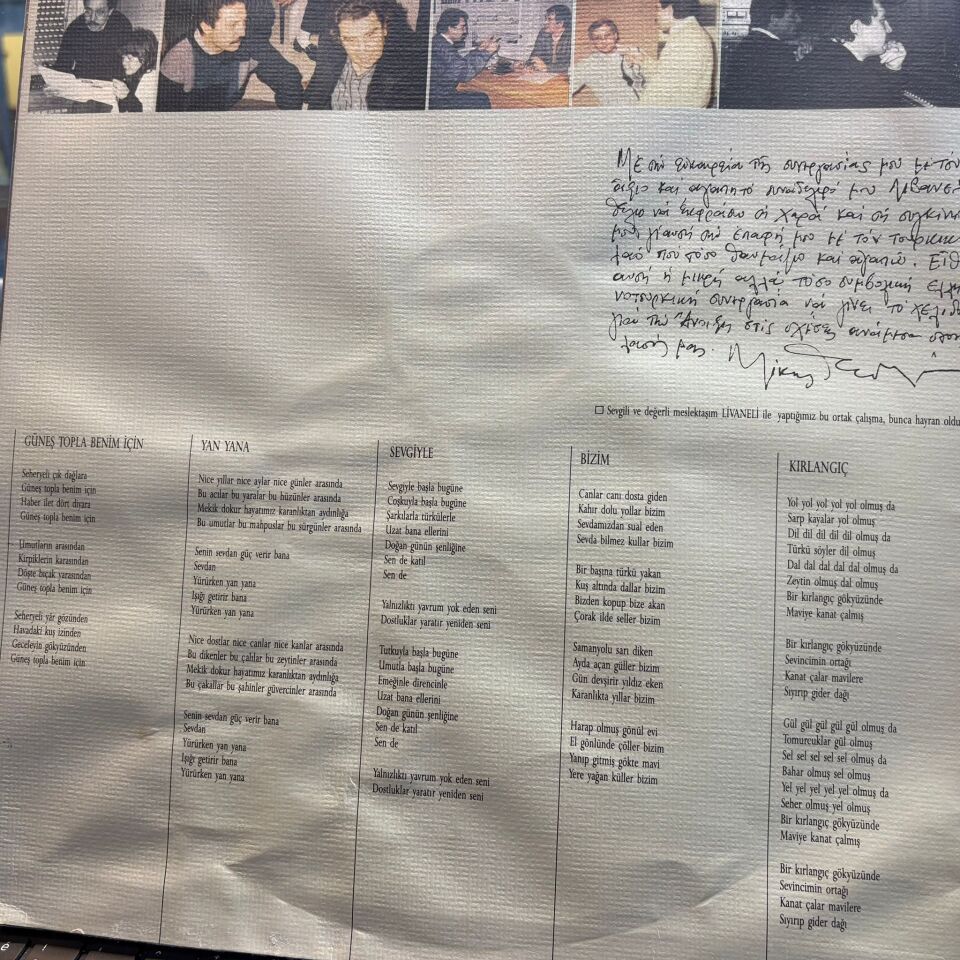 Μὲ τὴν εὐκαιρεία τῆς συνεργασίας μου μὲ τὸν
ἄξιο καὶ ἀγαπητὸ συνάδελφό μου Λιβανελ
θέλω νὰ ἐκφράσω τὴ χαρά καὶ τὴ συγκίνη
μου γι' αυτὴ τὴν ἐπαφή μου μὲ τὸν τουρκικ
λαὸ ποὺ τόσο θαυμάζω καὶ ἀγαπῶ. Εἴθ
αυτὴ ἡ μικρὴ ἀλλὰ τόσο συμβολικὴ ἑλλη
νοτουρκικὴ συνεργασία νὰ γίνει τὸ χελιδ
γιὰ τὴν Ἄνοιξη στὶς σχέσεις ἀνάμεσα στου
λαούς μας. Μίκης
☐ Sevgili ve değerli meslektaşım LİVANELİ ile yaptığımız bu ortak çalışma, bunca hayran oldu
GÜNEŞ TOPLA BENİM İÇİN
Seheryeli çık dağlara
Güneş topla benim için
Haber ilet dört diyara
Güneş topla benim için
Umutların arasından
Kirpiklerin karasından
Döşte bıçak yarasından
Güneş topla benim için
Seheryeli yâr gözünden
Havadaki kuş izinden
Geceleyin gökyüzünden
Güneş topla benim için
YAN YANA
Nice yıllar nice aylar nice günler arasında
Bu acılar bu yaralar bu hüzünler arasında
Mekik dokur hayatımız karanlıktan aydınlığa
Bu umutlar bu mahpuslar bu sürgünler arasında
Senin sevdan güç verir bana
Sevdan
Yürürken yan yana
Işığı getirir bana
Yürürken yan yana
Nice dostlar nice canlar nice kanlar arasında
Bu dikenler bu çalılar bu zeytinler arasında
Mekik dokur hayatımız karanlıktan aydınlığa
Bu çakallar bu şahinler güvercinler arasında
Senin sevdan güç verir bana
Sevdan
Yürürken yan yana
Işığı getirir bana
Yürürken yan yana
SEVGİYLE
Sevgiyle başla bugüne
Coşkuyla başla bugüne
Şarkılarla türkülerle
Uzat bana ellerini
Doğan günün şenliğine
Sen de katıl
Sen de
Yalnızlıktı yavrum yok eden seni
Dostluklar yaratır yeniden seni
Tutkuyla başla bugüne
Umutla başla bugüne
Emeğinle direncinle
Uzat bana ellerini
Doğan günün şenliğine
Sen de katıl
Sen de
Yalnızlıktı yavrum yok eden seni
Dostluklar yaratır yeniden seni
BİZİM
Canlar canı dosta giden
Kahır dolu yollar bizim
Sevdamızdan sual eden
Sevda bilmez kullar bizim
Bir başına türkü yakan
Kuş altında dallar bizim
Bizden kopup bize akan
Çorak ilde seller bizim
Samanyolu sarı diken
Ayda açan güller bizim
Gün devşirir yıldız eken
Karanlıkta yıllar bizim
Harap olmuş gönül evi
El gönlünde çöller bizim
Yanıp gitmiş gökte mavi
Yere yağan küller bizim
KIRLANGIÇ
Yol yol yol yol yol olmuş da
Sarp kayalar yol olmuş
Dil dil dil dil dil olmuş da
Türkü söyler dil olmuş
Dal dal dal dal dal olmuş da
Zeytin olmuş dal olmuş
Bir kırlangıç gökyüzünde
Maviye kanat çalmış
Bir kırlangıç gökyüzünde
Sevincimin ortağı
Kanat çalar mavilere
Sıyırıp gider dağı
Gül gül gül gül gül olmuş da
Tomurcuklar gül olmuş
Sel sel sel sel sel olmuş da
Bahar olmuş sel olmuş
Yel yel yel yel yel olmuş da
Seher olmuş yel olmuş
Bir kırlangıç gökyüzünde
Maviye kanat çalmış
Bir kırlangıç gökyüzünde
Sevincimin ortağı
Kanat çalar mavilere
Sıyırıp gider dağı